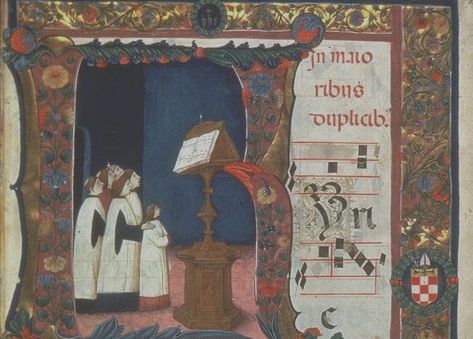 yhs
In maio
ribus
duplicib.